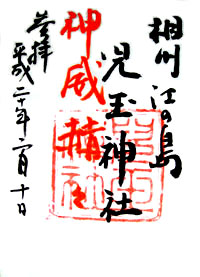 相州江の島
児玉神社
神威赫々
参拝
平成二十年二月十日